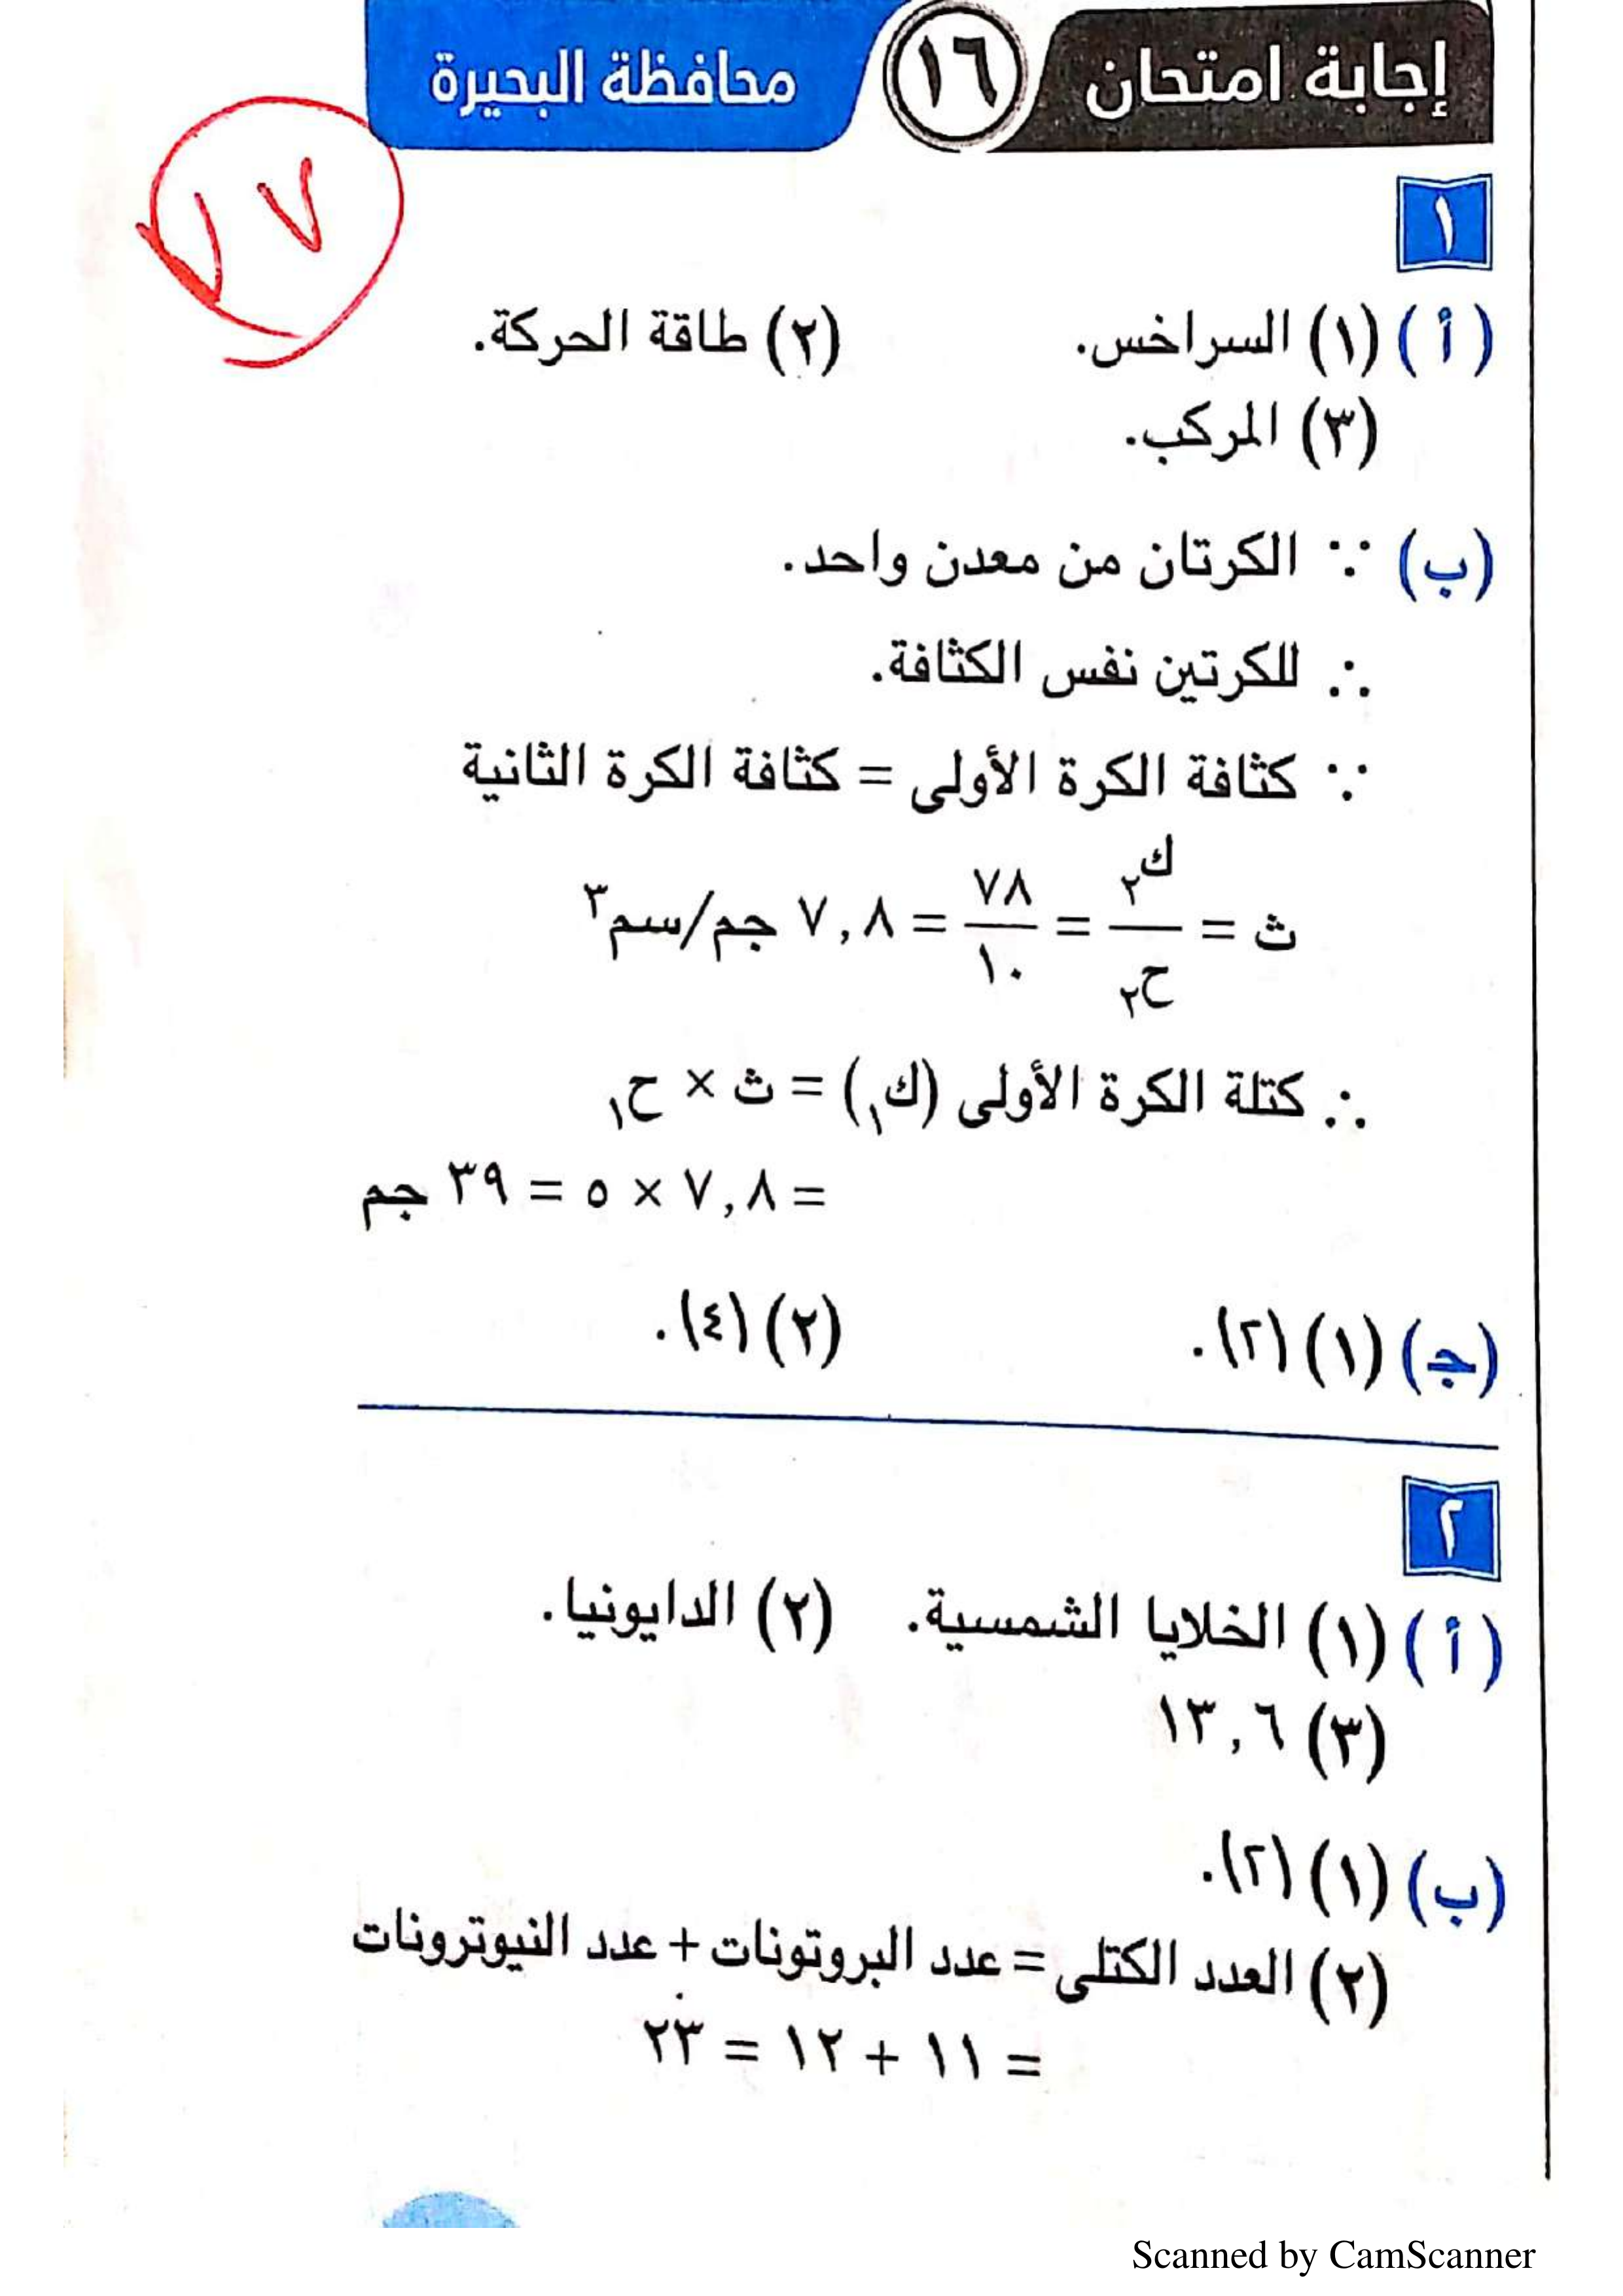 إجابة امتحان ١٦ محافظة البحيرة
١٧
١
(أ) (١) السراخس. (٢) طاقة الحركة.
(٣) المركب.
(ب) ∵ الكرتان من معدن واحد.
∴ للكرتين نفس الكثافة.
∵ كثافة الكرة الأولى = كثافة الكرة الثانية
ث = ك٢ / ح٢ = ٧٨ / ١٠ = ٧,٨ جم/سم٣
∴ كتلة الكرة الأولى (ك١) = ث × ح١
= ٧,٨ × ٥ = ٣٩ جم
(جـ) (١) (٢). (٢) (٤).
٢
(أ) (١) الخلايا الشمسية. (٢) الدايونيا.
(٣) ١٣,٦
(ب) (١) (٢).
(٢) العدد الكتلى = عدد البروتونات + عدد النيوترونات
= ١١ + ١٢ = ٢٣
Scanned by CamScanner